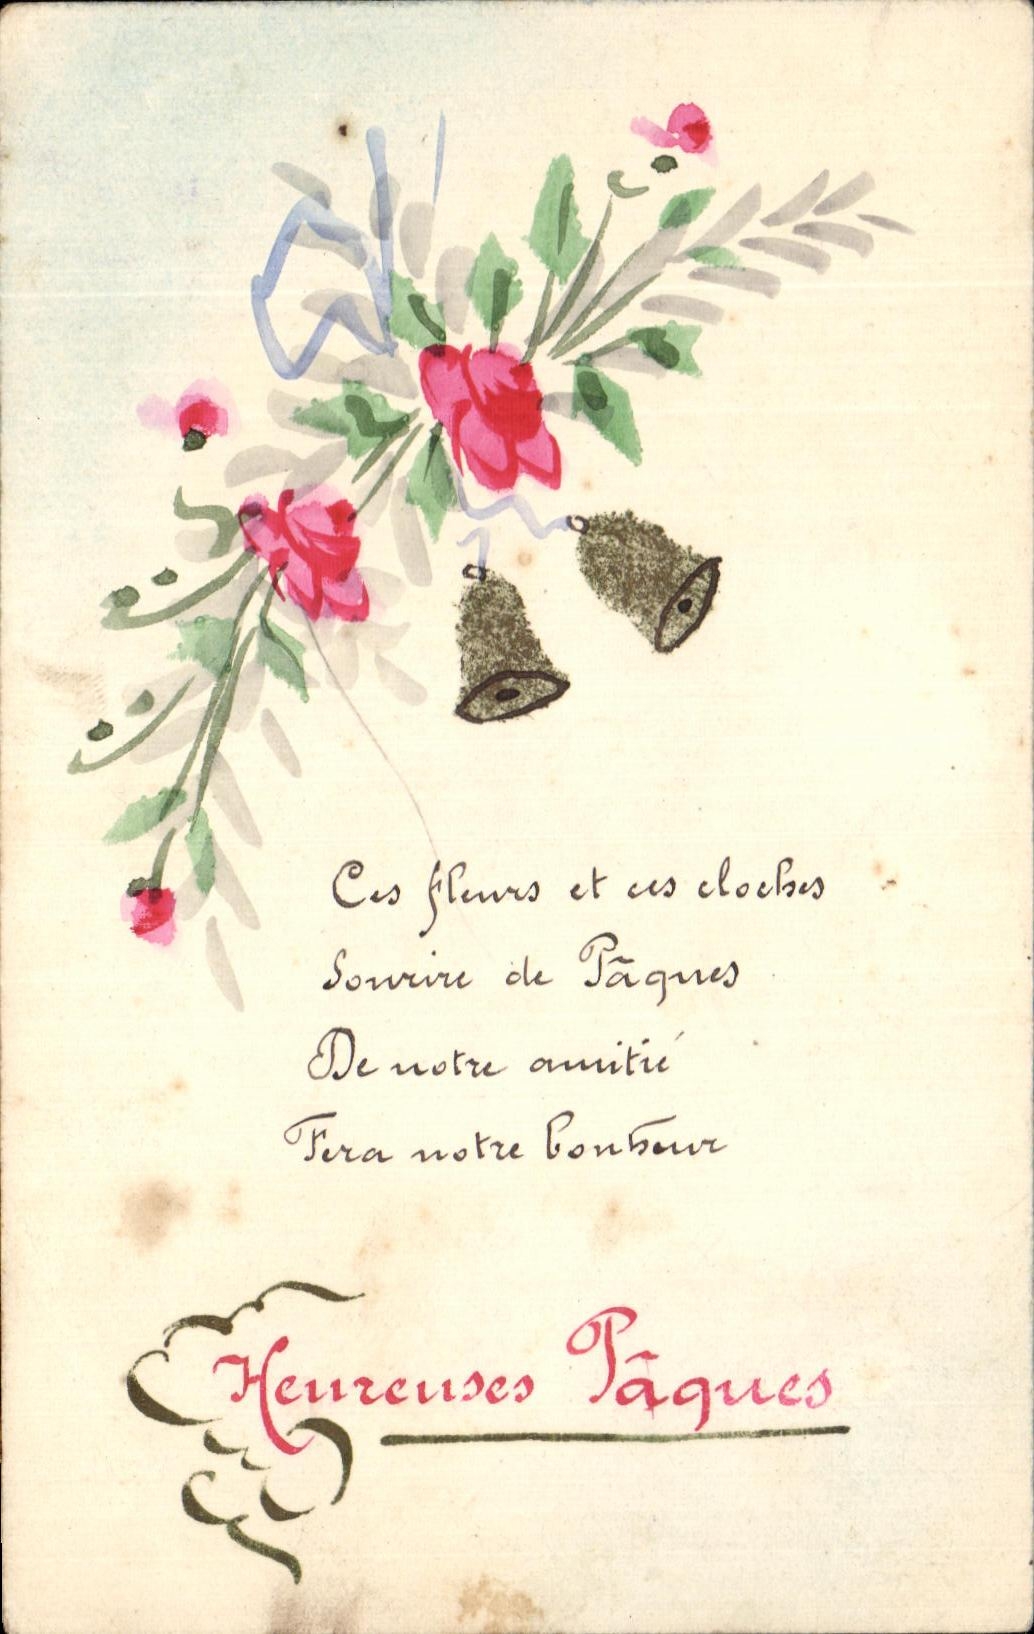 Ces fleurs et ces cloches
Sourire de Pâques
De notre amitié
Fera notre bonheur
Heureuses Pâques